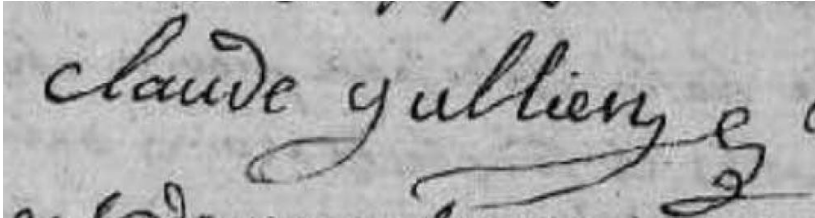 claude yullien